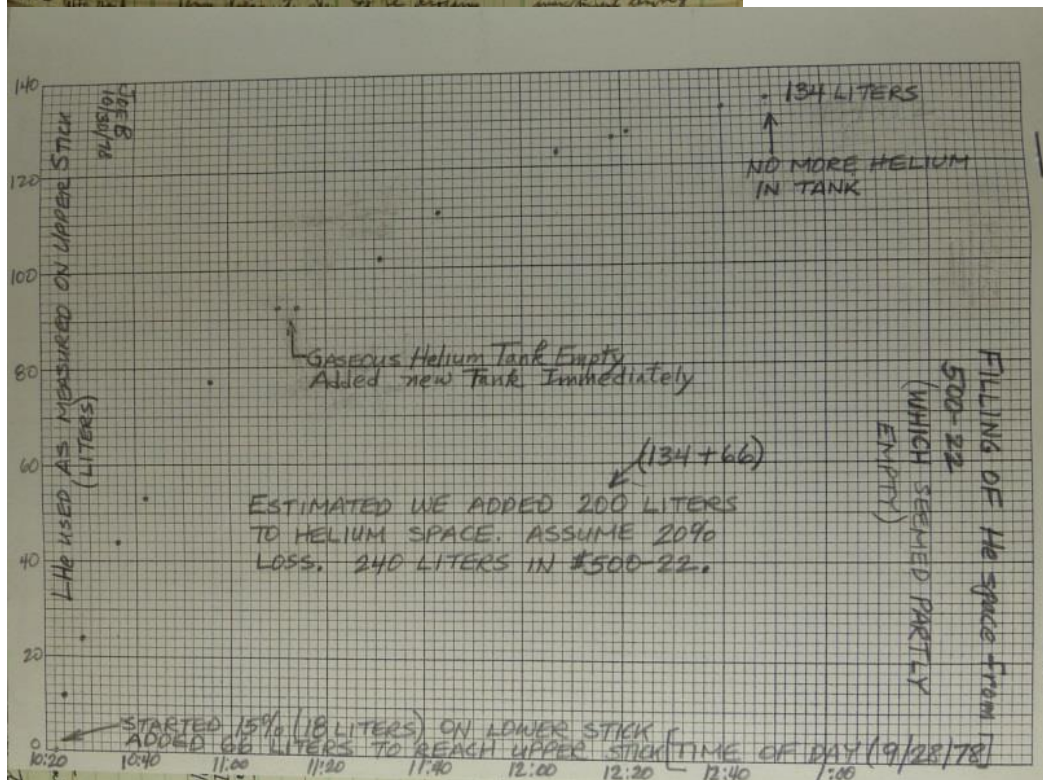 140
120
100
80
60
40
20
0
LHe USED AS MEASURED ON UPPER STICK
(LITERS)
JOE B
10/30/78
134 LITERS
NO MORE HELIUM
IN TANK
GASEOUS Helium Tank Empty
Added new Tank Immediately
(134 + 66)
ESTIMATED WE ADDED 200 LITERS
TO HELIUM SPACE. ASSUME 20%
LOSS. 240 LITERS IN #500-22.
FILLING OF He space from
500-22
(WHICH SEEMED PARTLY
EMPTY)
STARTED 15% (18 LITERS) ON LOWER STICK
ADDED 66 LITERS TO REACH UPPER STICK
[TIME OF DAY (9/28/78)]
10:20 10:40 11:00 11:20 11:40 12:00 12:20 12:40 1:00